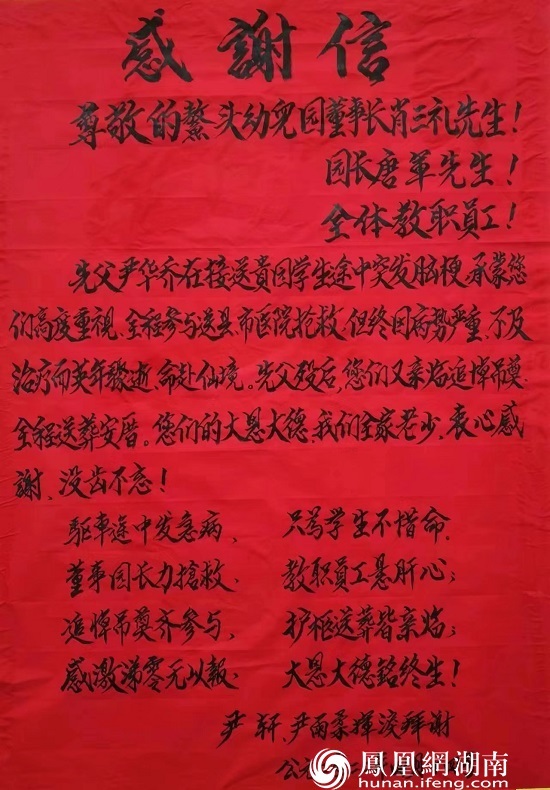 感謝信
尊敬的鳌头幼兒园董事长肖三礼先生！
园长唐軍先生！
全体教职员工！
先父尹华乔在接送貴园学生途中突发脑梗,承蒙您
们高度重视、全程参与送县、市医院抢救,但终因病势严重、不及
治疗而英年發逝,命赴仙境。先父殁后,您们又亲临追悼吊奠、
全程送葬安厝。您们的大恩大德,我们全家老少、衷心感
謝、没齿不忘！
駆車途中发急病、 只為学生不惜命、
董事园长力搶救、 教职員工悬肝心；
追悼吊奠齐参与、 护柩送葬皆亲临；
感激涕零无以報、 大恩大德銘终生！
尹轩、尹雨柔揮淚拜谢
公元
鳳凰網湖南
hunan.ifeng.com